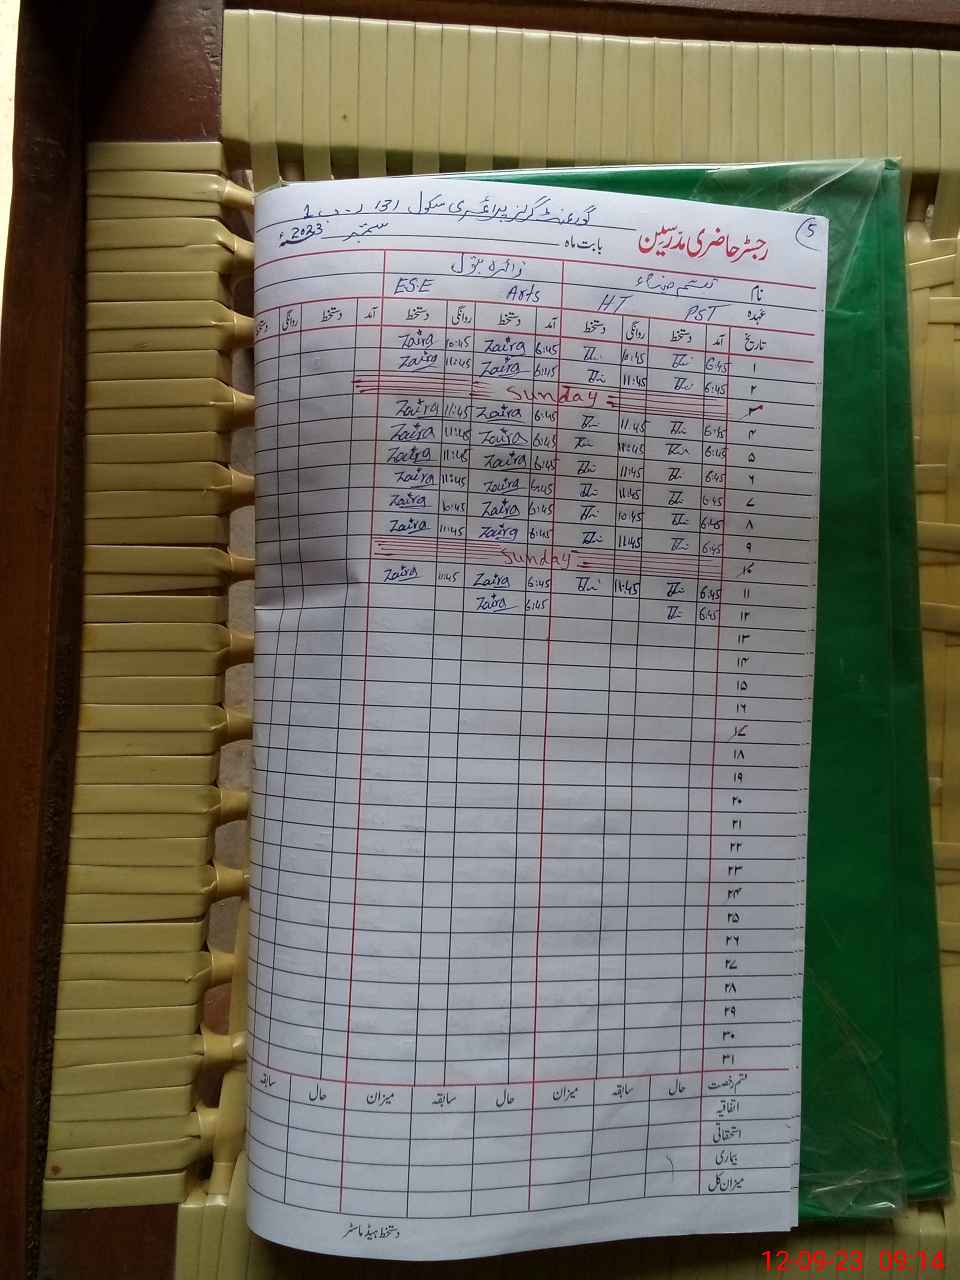 ۵
گورنمنٹ گرلز پرائمری سکول 131 ر۔ب 1
رجسٹر حاضری مدرسین بابت ماہ ستمبر 2023ء
نام زائرہ بتول
عہدہ PST HT Arts ESE
تاریخ آمد دستخط روانگی دستخط آمد دستخط روانگی دستخط آمد دستخط روانگی دستخط
۱ 6:45 10:45 6:45 Zaira 10:45 Zaira
۲ 6:45 11:45 6:45 Zaira 11:45 Zaira
۳ Sunday
۴ 6:45 11:45 6:45 Zaira 11:45 Zaira
۵ 6:45 11:45 6:45 Zaira 11:45 Zaira
۶ 6:45 11:45 6:45 Zaira 11:45 Zaira
۷ 6:45 11:45 6:45 Zaira 11:45 Zaira
۸ 6:45 10:45 6:45 Zaira 10:45 Zaira
۹ 6:45 11:45 6:45 Zaira 11:45 Zaira
۱۰ Sunday
۱۱ 6:45 11:45 6:45 Zaira 11:45 Zaira
۱۲ 6:45 6:45 Zaira
۱۳
۱۴
۱۵
۱۶
۱۷
۱۸
۱۹
۲۰
۲۱
۲۲
۲۳
۲۴
۲۵
۲۶
۲۷
۲۸
۲۹
۳۰
۳۱
قسم رخصت حال سابقہ میزان حال سابقہ میزان حال سابقہ
اتفاقیہ
استحقاقی
بیماری
میزان کل
دستخط ہیڈ ماسٹر
12-09-23 09:14